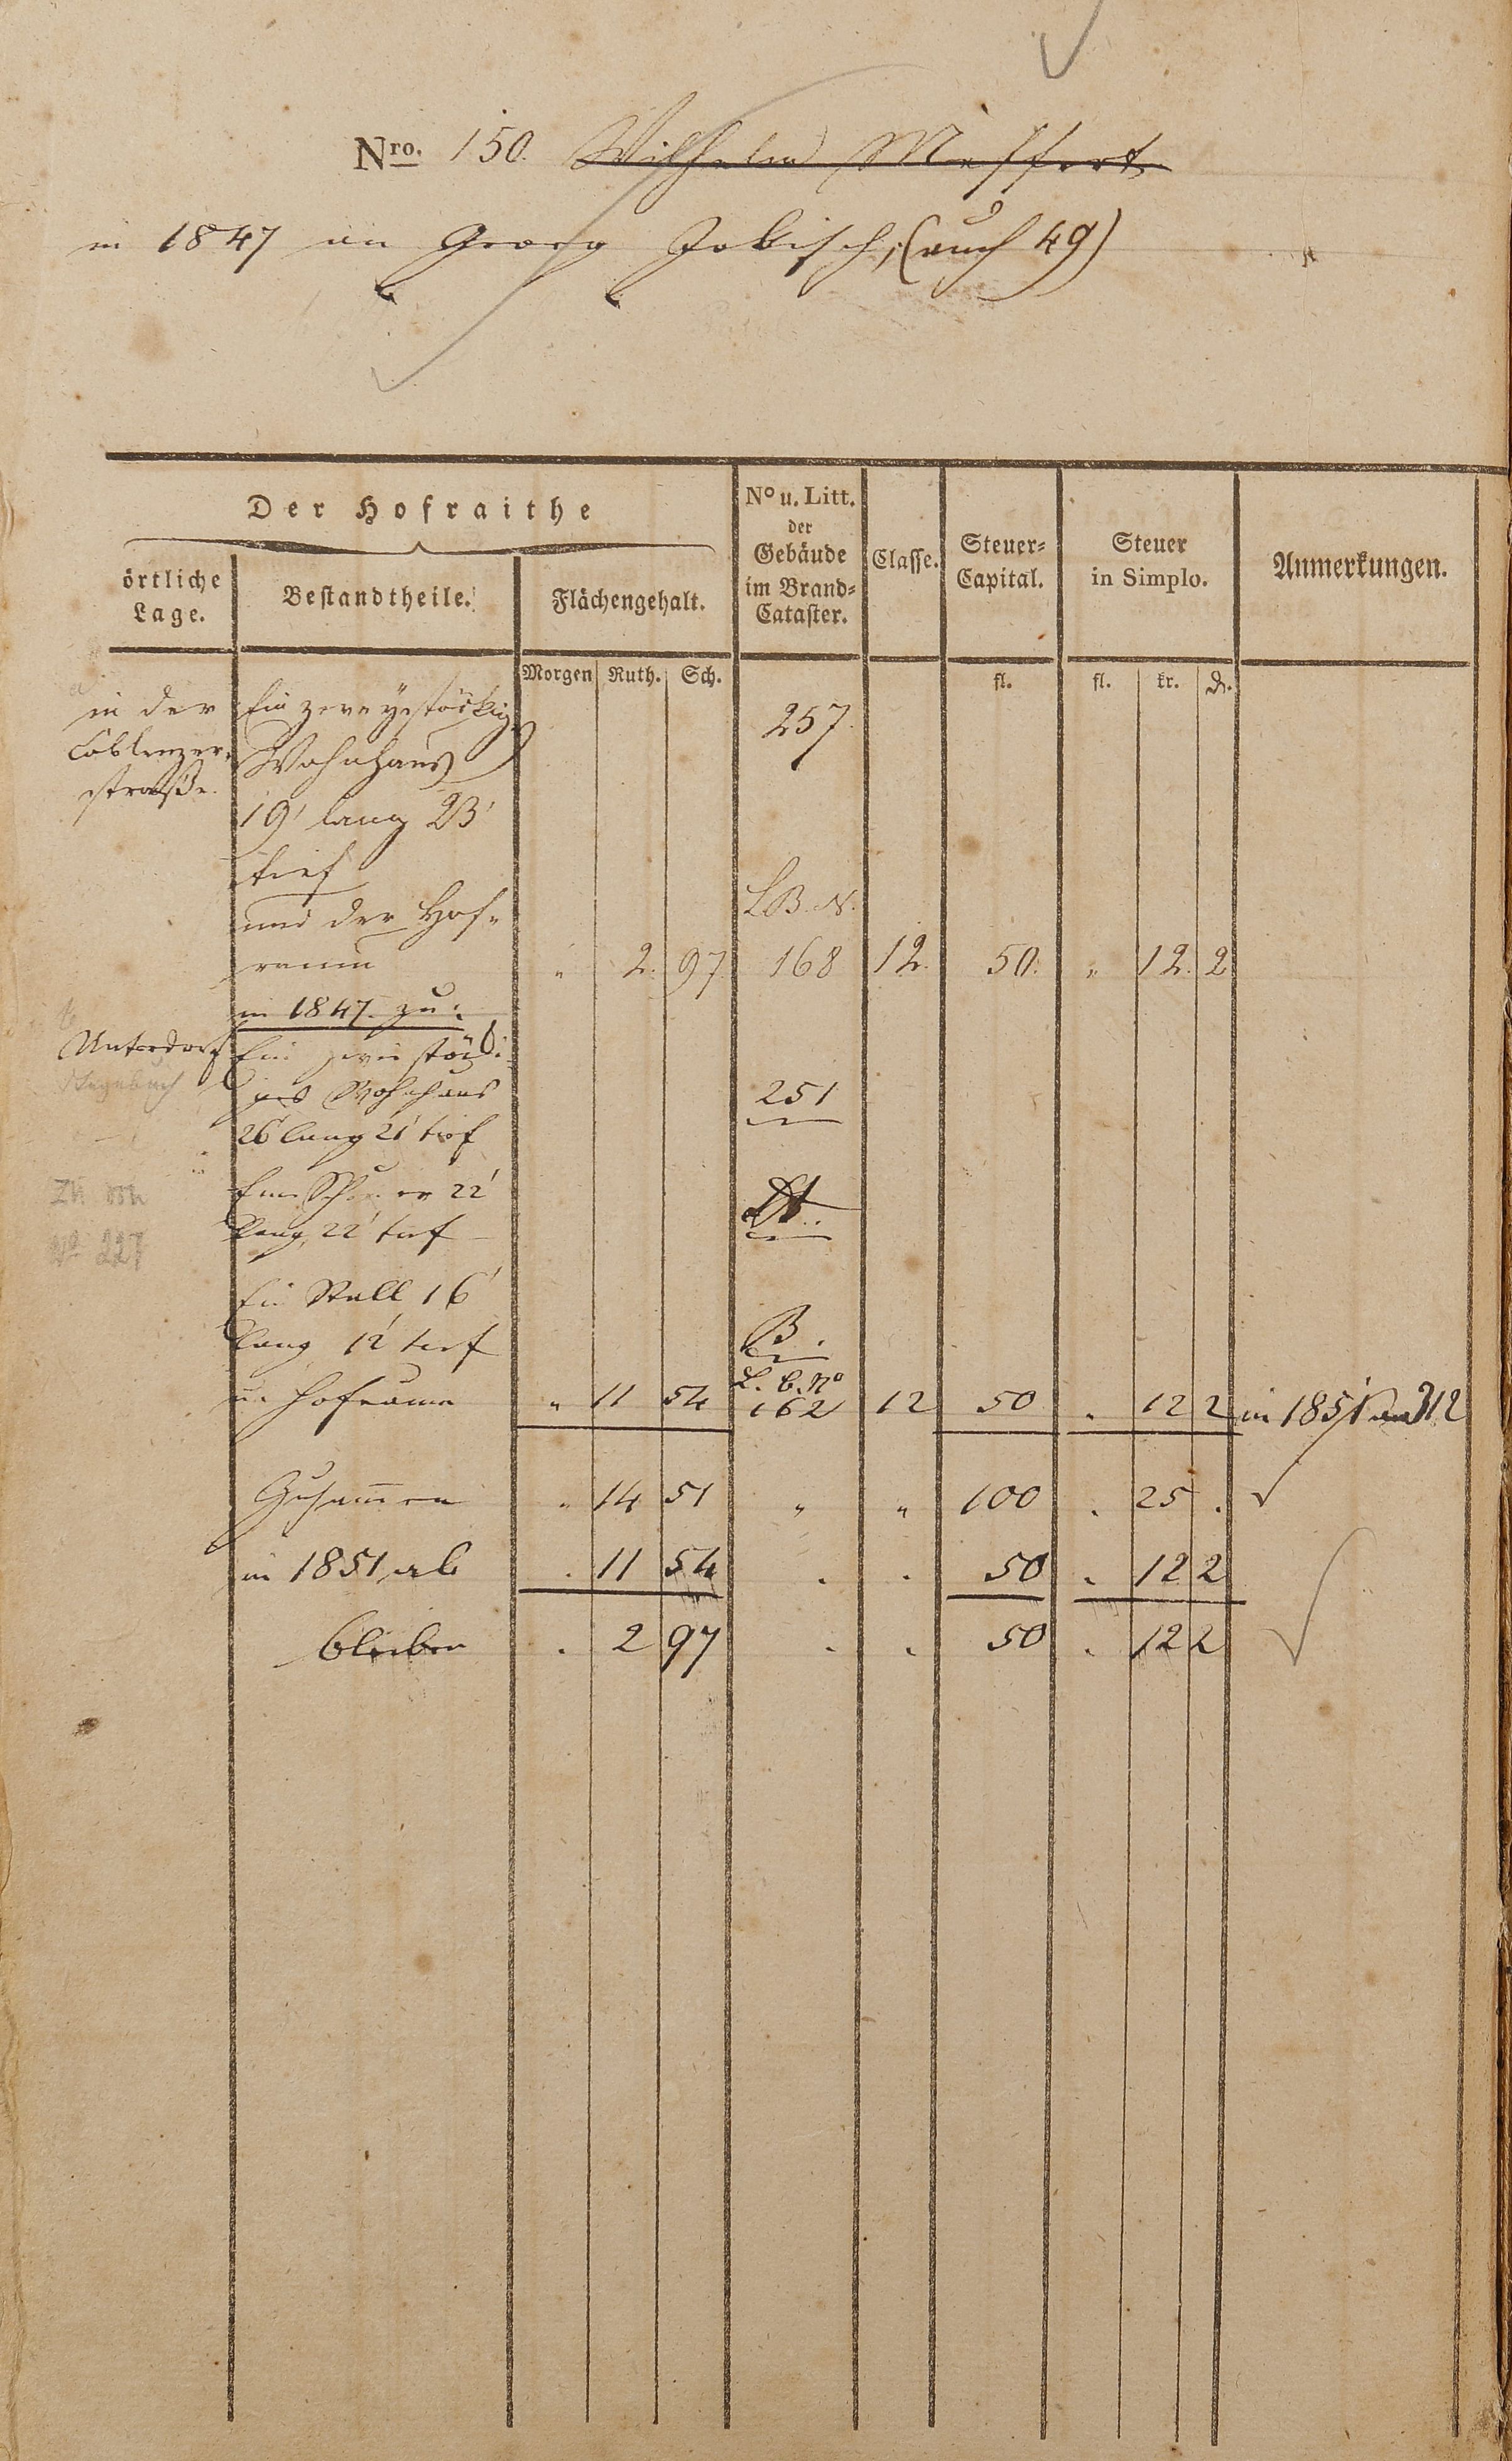 Nro. 150. Wilhelm Meffert
in 1847 an Georg Jobisch, (auch 49)
Der Hofraithe
örtliche Lage.
Bestandtheile.
Flächengehalt.
No u. Litt. der Gebäude im Brand-Cataster.
Classe.
Steuer-Capital.
Steuer in Simplo.
Anmerkungen.
Morgen Ruth. Sch. fl. fl. kr. d.
in der Ein zweystöckig 257.
Coblenzer- Wohnhaus
straße. 19' lang 23'
tief
und der Hof- LB. N.
raum " 2. 97. 168 12. 50. " 12. 2
in 1847. zu:
Unterdorf Ein zweistöcki-
ges Wohnhaus 251
26' lang 21' tief
Zu von Eine Scheuer 22'
No 227 lang, 22' tief A.
Ein Stall 16'
lang 12' tief B.
u. Hofraum " 11 54 L. b. No 162 12 50 . 12 2 in 1851 an 312
Zusam̄en " 14 51 " " 100 . 25 .
in 1851 ab . 11 54 . . 50 . 12 2
bleiben . 2 97 . . 50 . 12 2